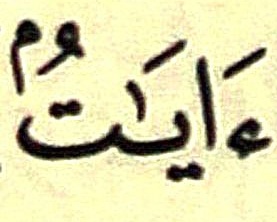 ءَايَٰتُۢ